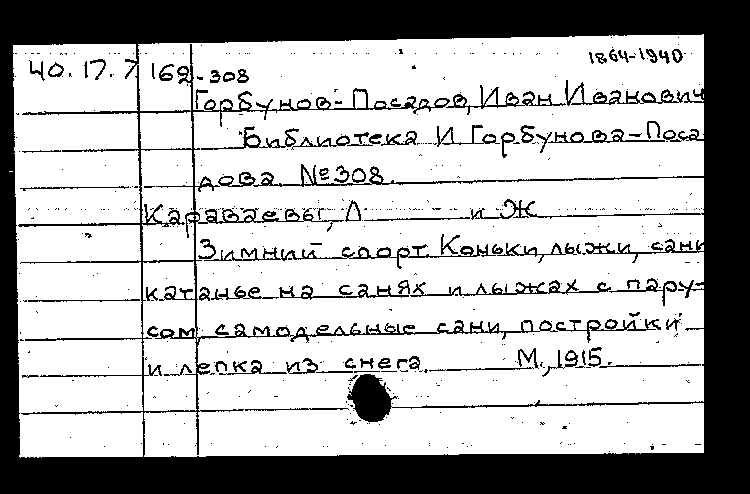 1864-1940
40.17.7 162-308
Горбунов-Посадов, Иван Иванович
Библиотека И. Горбунова-Поса-
дова. №308.
Караваевы, Л и Ж
Зимний спорт. Коньки, лыжи, сани
катанье на санях и лыжах с пару-
сом, самодельные сани, постройки
и лепка из снега. М., 1915.